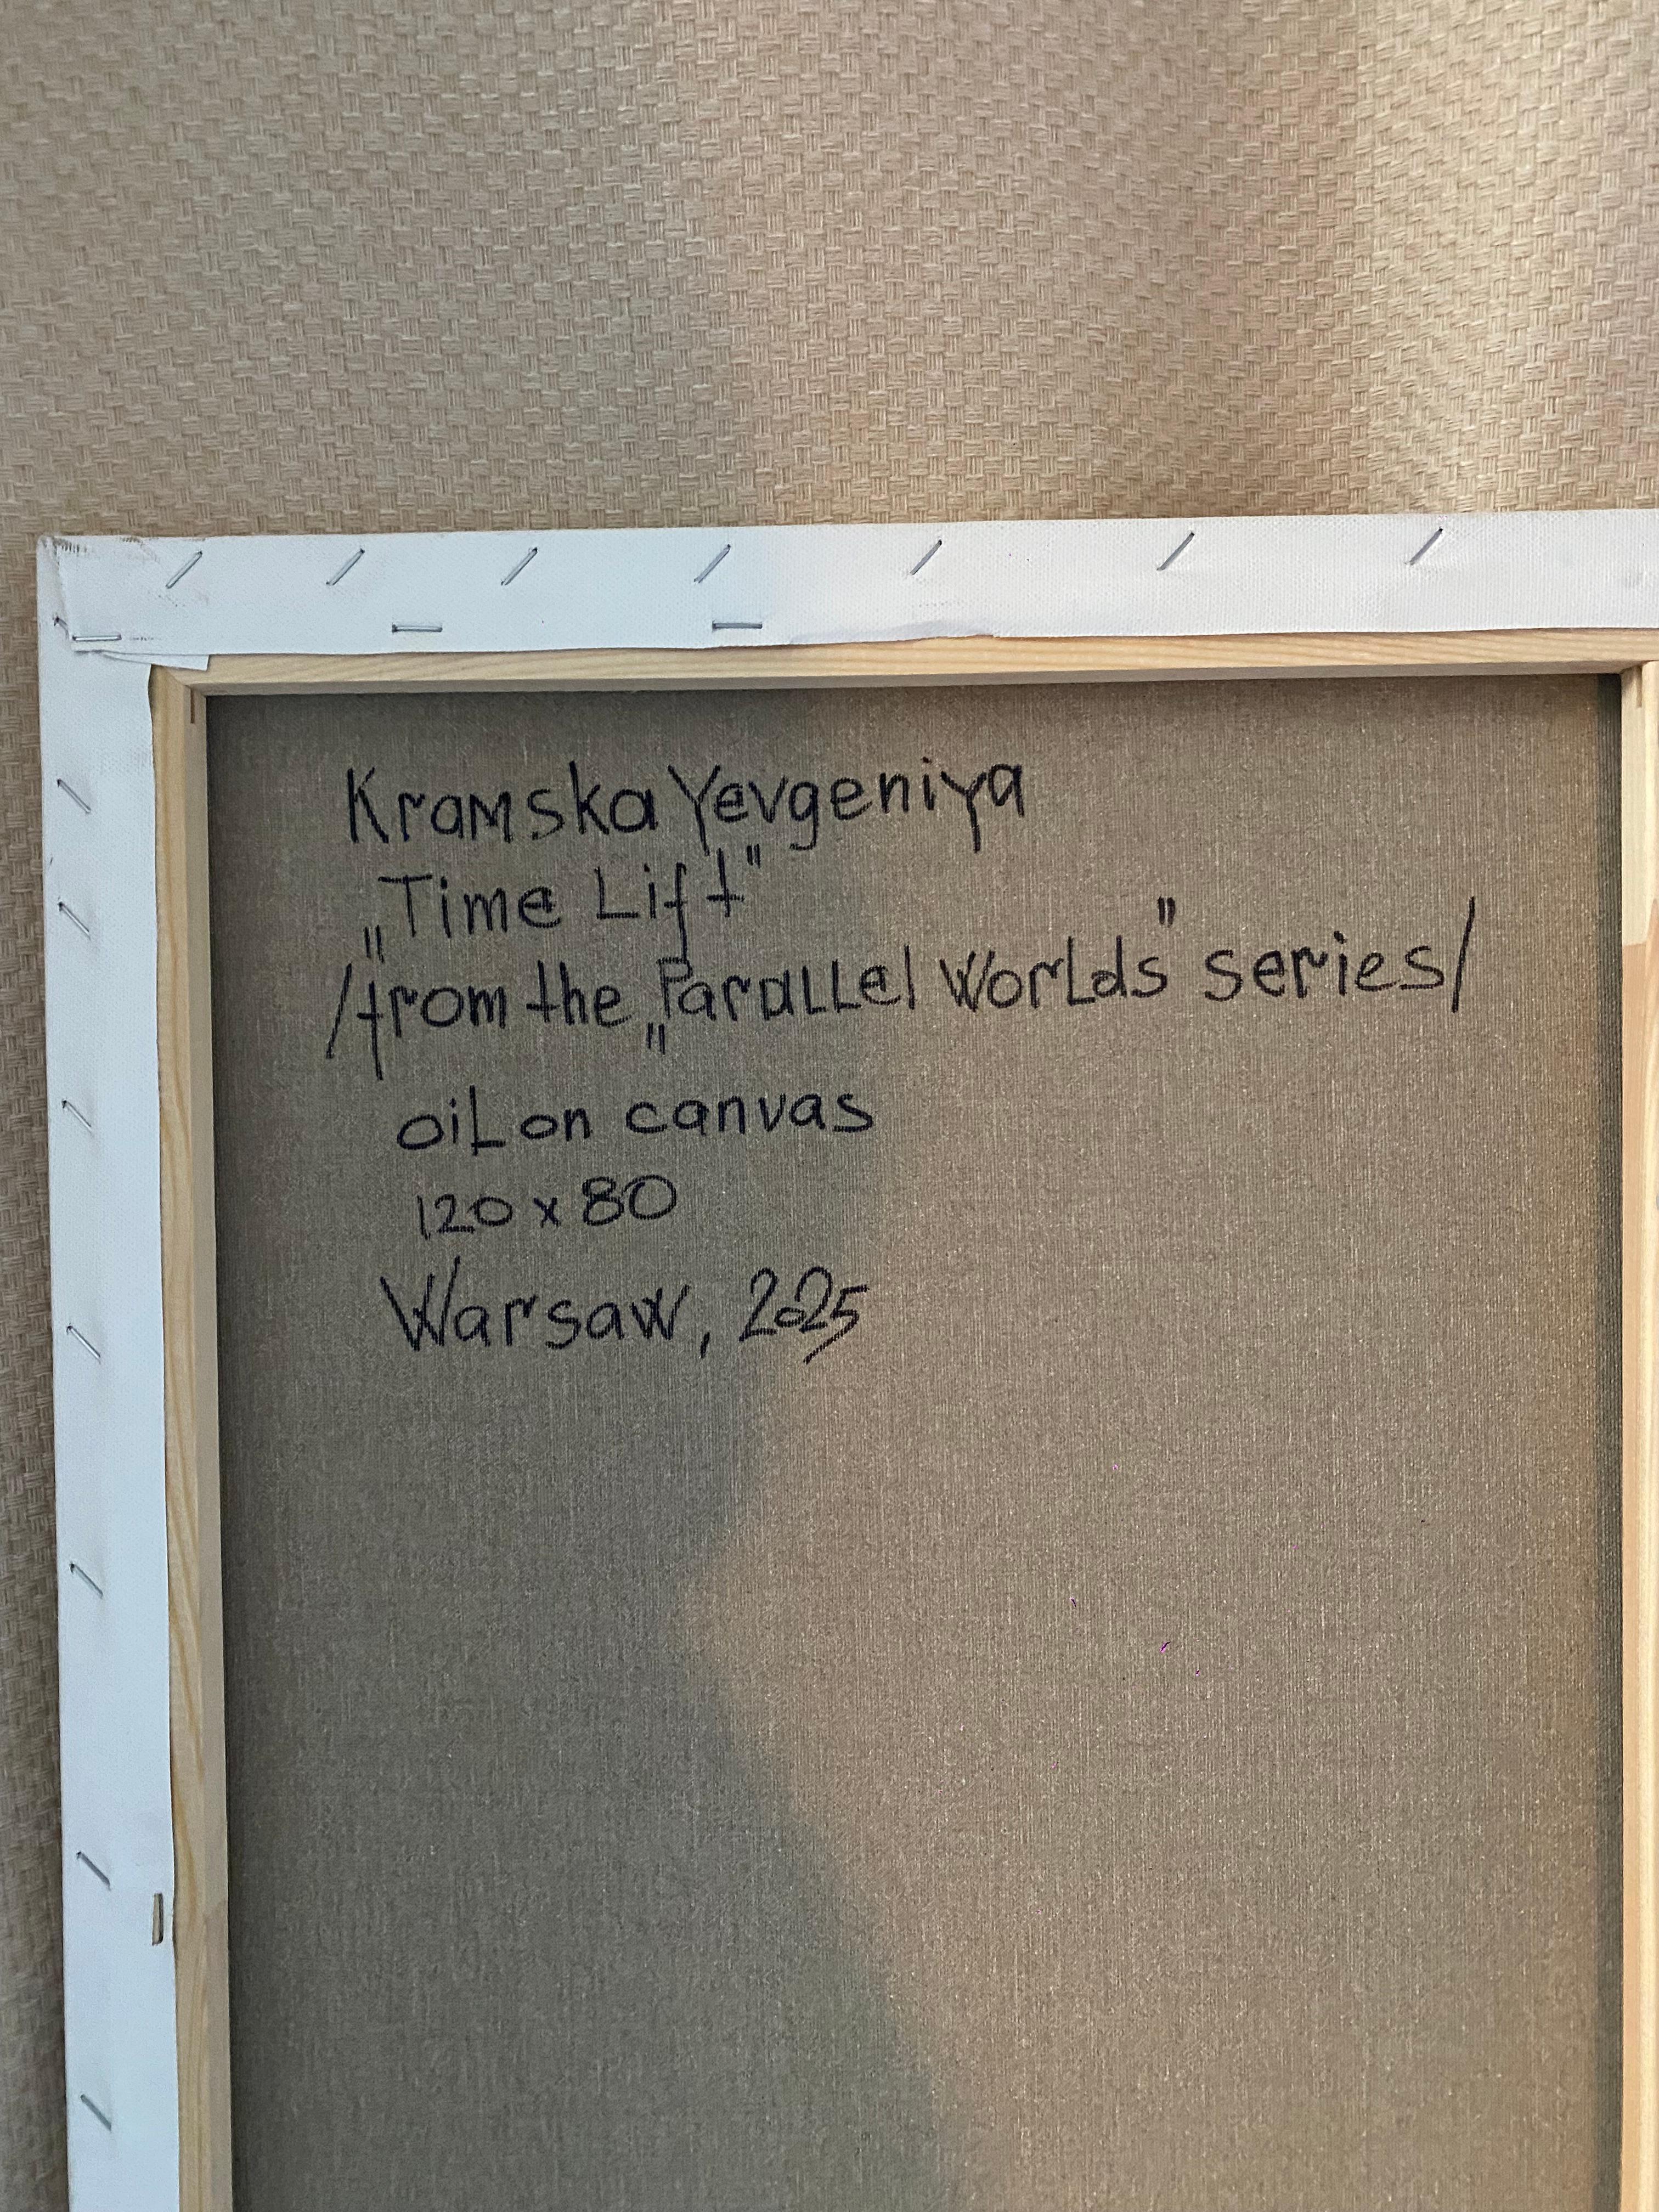 Kramska Yevgeniya
„Time Lift"
/from the „Parallel Worlds" series/
oil on canvas
120 x 80
Warsaw, 2025